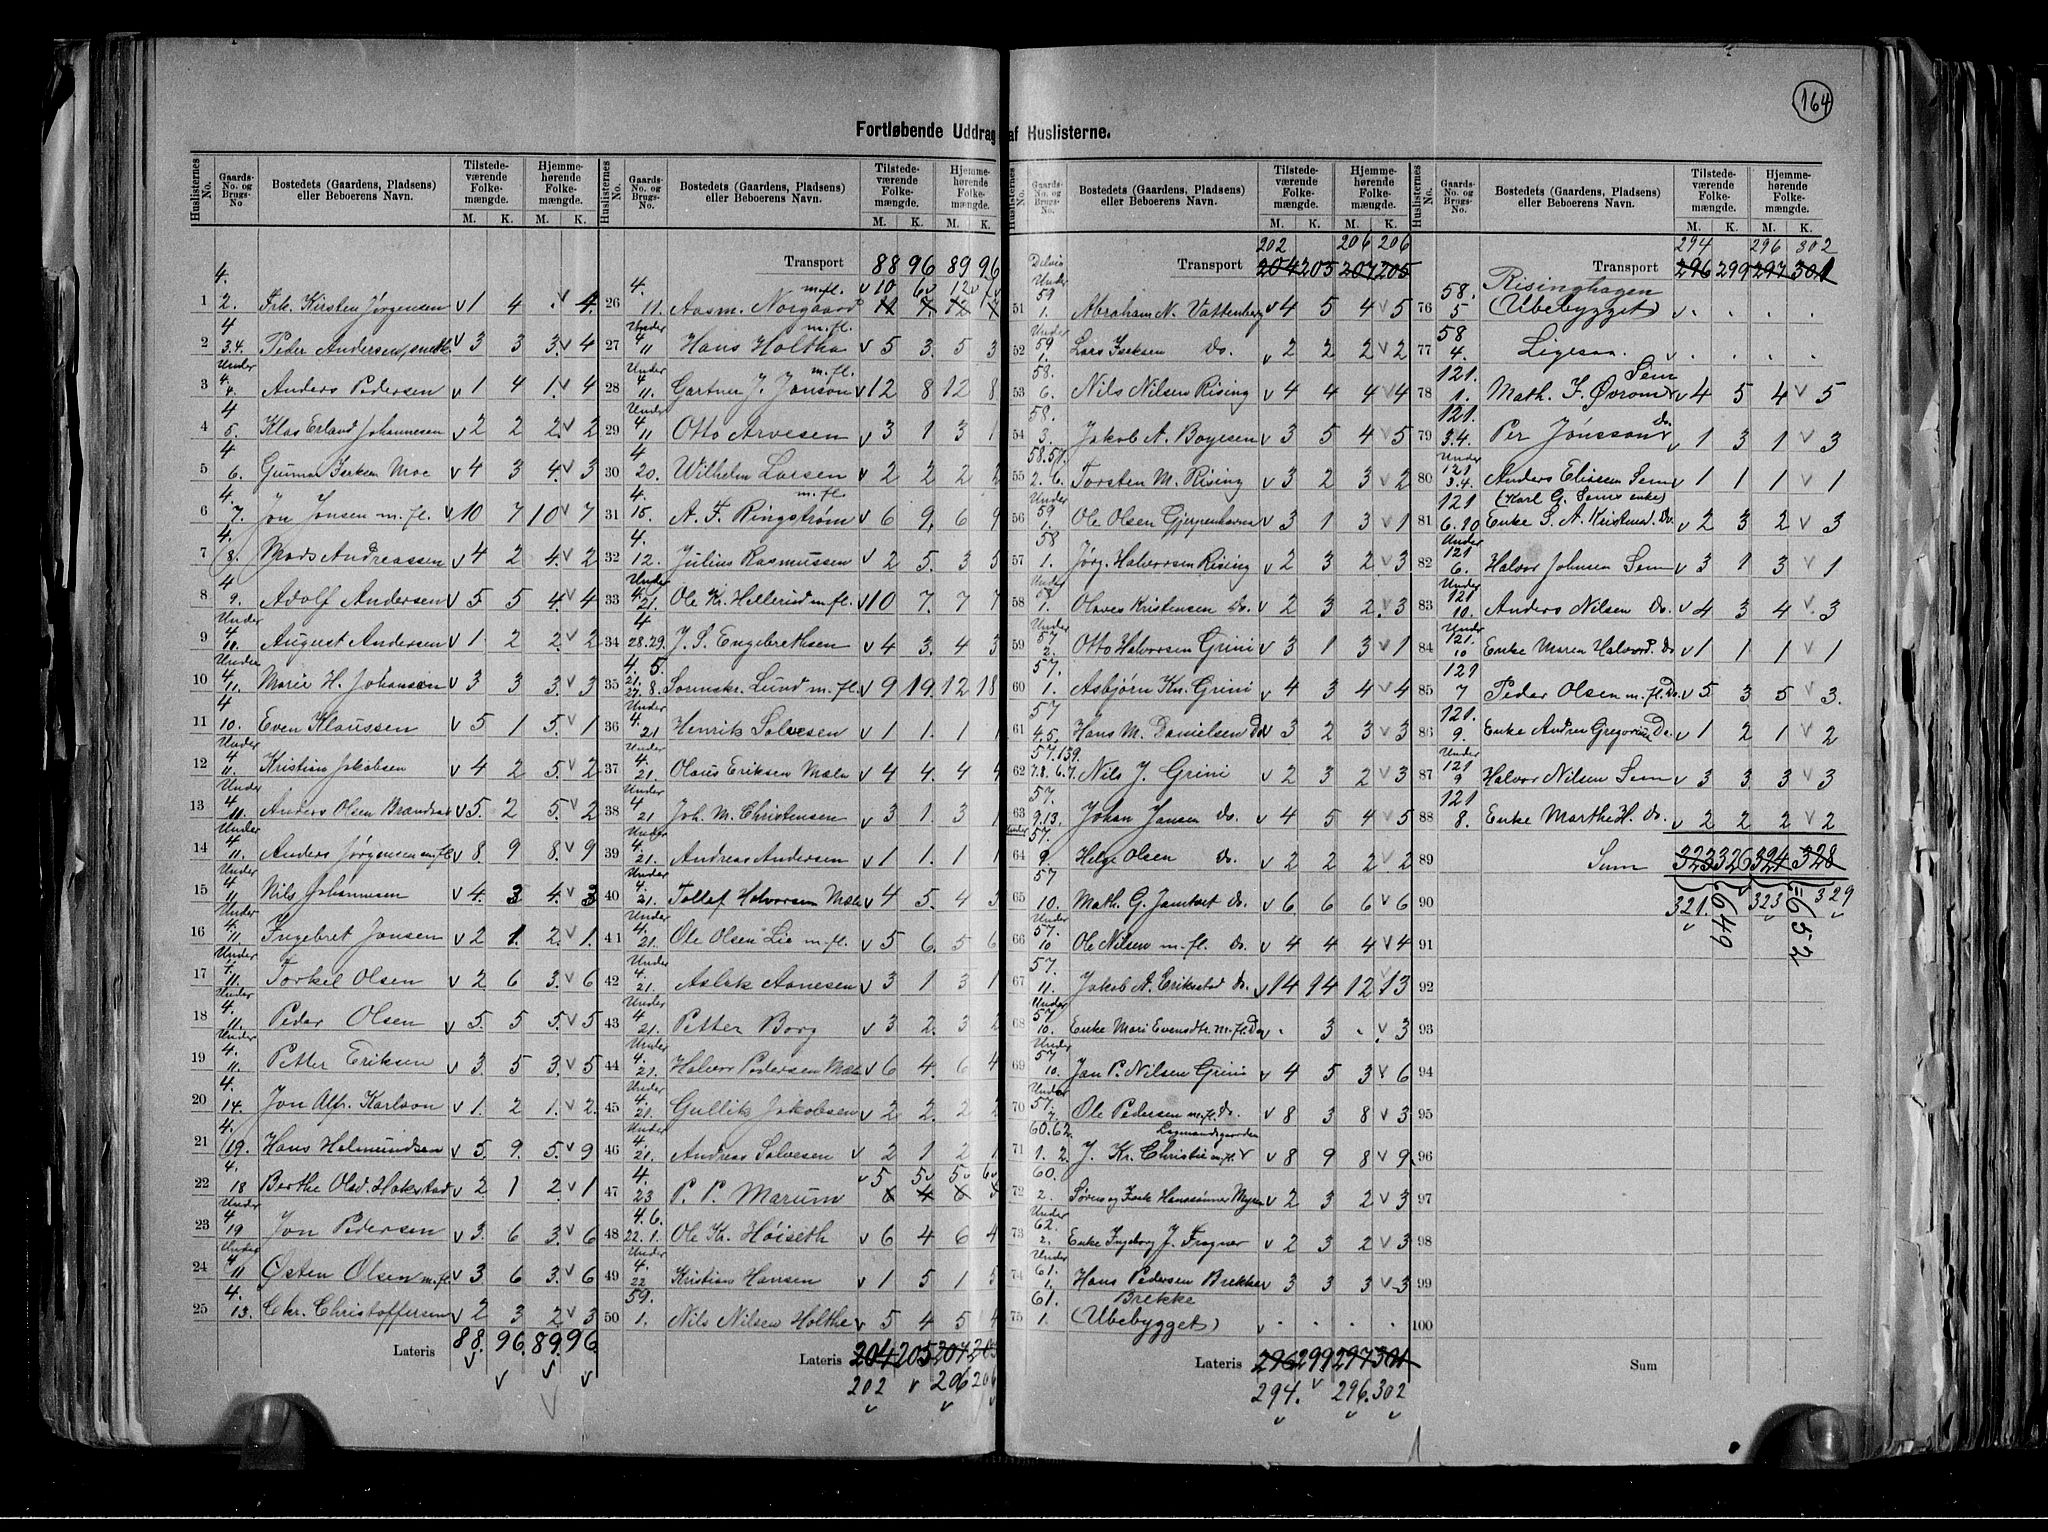 164
Fortløbende Uddrag af Huslisterne.
Huslisternes No. Gaards-No. og Brugs-No. Bostedets (Gaardens, Pladsens) eller Beboerens Navn. Tilstedeværende Folkemængde. M. K. Hjemmehørende Folkemængde. M. K.
1 4. 2. Frk. Kirsten Jørgensen v 1 4 . v 4.
2 4 3.4. Peder Andersen v 3 3 3. v 4
3 Under 4. 4. Anders Pedersen v 1 4 1. v 4
4 4 5. Klas Erland Johannesen v 2 2 2. v 2
5 4 6. Gunnar Isaksen Moe v 4 3 4. v 3
6 4. 7. Jon Jonsen m. fl. v 10 7 10 v 7
7 4. 8. Mads Andreassen v 4 2 4. v 2
8 4 9. Adolf Andersen v 5. 5 4. v 4
9 Under 4 10. August Andersen v 1. 2 2. v 2
10 Under 4 11. Marie H. Johansen v 3 3 3. v 3
11 4 10. Even Klaussen v 5 1 5. v 1
12 Under 4 11. Kristian Jakobsen v 4 2 5. v 2
13 Under 4 11. Anders Olsen v 5. 2 5. v 2
14 Under 4 11. Anders Jørgensen m. fl. v 8. 9 8. v 9
15 Under 4 11 Nils Johannesen v 4. 3 4. v 3
16 Under 4. 11 Ingebret Jonsen v 2 1. 2. v 1.
17 Under 4. 11. Torkel Olsen v 2 6 3. v 6
18 Under 4. 11. Peder Olsen v 5. 5 5. v 5
19 Under 4. 11. Petter Eriksen v 3. 5 3. v 5
20 4. 14. Jon Alfr. Karlson v 1. 2 1. v 2.
21 4. 19. Hans Halmundsen v 5. 9. 5. v 9
22 4. 18 Berthe Olsd. Hakstad v 2 1 2. v 1
23 Under 4 19 Jon Pedersen v 3. 6 3. v 6
24 Under 4 11 Østen Olsen m. fl. v 3. 6 3. v 6
25 4. 13. Chr. Christoffersen v 2 3 2. v 3
Lateris 88. 96. 89. 96.
Transport 88 96 89 96
26 4. 11. Aasm. Norgaard m. fl. v 10 6 v 12 v 7 v
11 7. 12 7
27 Under 4 11 Hans Holtha m. fl. v 5 3. 5 3
28 Under 4. 11. Gartner J. Janson m. fl. v 12 8 12 8
29 Under 4 11 Otto Arvesen v 3 1 3 1
30 4 20. Wilhelm Larsen v 2 2 2 2
31 4. 15. A. F. Ringstrøm m. fl. v 6 9. 6 9
32 4. 12. Julius Rasmussen v 2 5. 3 5
33 Under 4. 21. Ole Kr. Hellerud m. fl. v 10 7. 7 7
34 4 28.29. J. S. Engebrethsen v 4 3. 4 3
35 4. 5. 21. 27. 8. Lund m. fl. v 9 19. 12 18
36 Under 4. 21 Henrik Salvesen v 1 1. 1 1
37 Under 4. 21. Olaus Eriksen Mæla v 4 4. 4 4
38 Under 4 21 Joh. M. Christensen v 3 1. 3 1
39 Under 4. 21. Andreas Andersen v 1 1. 1 1
40 Under 4. 21. Tollef Halvorsen Mæla v 4 5. 4 5
41 Under 4. 21. Ole Olsen Lie m. fl. v 5 6. 5 6
42 Under 4. 21. Aslak Aanesen v 3 1 3 1
43 Under 4. 21. Petter Borg v 3 2. 3 2
44 Under 4. 21. Halvor Pedersen Mæla v 6 4. 6 4
45 Under 4. 21. Gullik Jakobsen v 2 2. 2 2
46 Under 4. 21. Andreas Salvesen v 2 1 2 1
47 4. 23 P. P. Marum v 5 5 v 5 v 6 v
6 4 6 5
48 4. 6. 22. 1. Ole Kr. Høiseth v 6 4 6 4
49 Under 4. 22 Kristian Hansen v 1 5 1 5
50 59. 1. Nils Nilsen Holthe v 5 4 5 4
Lateris 204 205 207 205
202 v 206 206
202 206 206
Transport 204 205 207 205
51 Under 59 1. Abraham N. Vattenberg v 4 5 4 v 5
52 Under 59 1. Lars Isaksen Do. v 2 2 2 v 2
53 58. 6. Nils Nilsen Rising v 4 4 4 v 4
54 58. 3. Jakob A. Boyesen v 3 5 4 v 5
55 58.57. 2. 6. Torsten M. Rising v 3 2 3 v 2
56 Under 59 1. Ole Olsen Gjerpenhavna v 3 1 3 v 1
57 58 1. Jørg. Halvorsen Rising v 2 3 2 v 3
58 Under 58 1. Olaves Kristensen Do. v 2 3 2. v 3
59 Under 57 2. Otto Halvorsen Grini v 3 1 3 v 1
60 57. 1. Asbjørn Kn. Grini v 4 3 4 v 4
61 57 4.5. Hans M. Danielsen Do v 3 2 3 v 3
62 57.139. 7.8. 6.7. Nils J. Grini v 2 3 2 v 3
63 57. 9.13. Johan Jansen Do. v 4 5 4 v 5
64 Under 57. 9. Helge Olsen Do. v 2 2 2. v 2
65 57 10. Math. G. Jamtvet Do. v 6. 6 6 v 6
66 Under 57. 10 Ole Nilsen m. fl. Do. v 4 4 4 v 4
67 57. 11. Jakob A. Erikstad Do. v 14 14 12 v 13
68 Under 57 10. Enke Mari Evensdtr. m. fl. Do v . 3 . v 3
69 Under 57 10. Jan P. Nilsen Grini v 4 5 3 v 6
70 Under 57. 7. Ole Pedersen m. fl. Do. v 8 3 8 v 3
71 60.62. 1. 2. J. Kr. Christie m. fl. Lagmandsgaarden v 8 9 8 v 9
72 60. 2. Søren og Isak Hanssønner Myren v 2 3 2 v 3
73 Under 62. 2. Enke Ingeborg J. Frogner v 2 3 2 v 3
74 Under 61. 1. Hans Pedersen Brekke v 3 3 3 v 3
75 61. 1. Brekke (Ubebygget) v . . . .
Lateris 296 299 297 301
294. v 296. 302
294 296 302
Transport 296 299 297 301
76 58. 5 Risinghagen (Ubebygget) v . . . .
77 58 4. Ligesaa. v . . . .
78 121. 1. Math. F. Øvrom Sem v 4 5 4 v 5
79 121. 3.4. Per Jónsson Do. v 1 3 1 v 3
80 Under 121 3.4. Anders Eliassen Sem v 1 1 1 v 1
81 121 6. 10 (Karl G. Sems enke) Enke S. A. Kristensd. Do. v 2 3 2 v 3
82 Under 121 6. Halvor Johnsen Sem v 3 1 3 v 1
83 Under 121 10. Anders Nilsen Do. v 4 3 4 v 3
84 Under 121. 10 Enke Maren Halvord. Do. v 1 1 1 v 1
85 121 7 Peder Olsen m. fl. Do. v 5 3 5 v 3.
86 121. 9. Enke Andrea Gregorine Do. v 1 2 1 v 2
87 Under 121 9 Halvor Nilsen Sem v 3 3. 3 v 3
88 121 8. Enke Marthe H. Do. v 2 2 2 v 2
89 Sum 323 326 324 328
90 321. 323 329
=649 =652
91
92
93
94
95
96
97
98
99
100
Sum